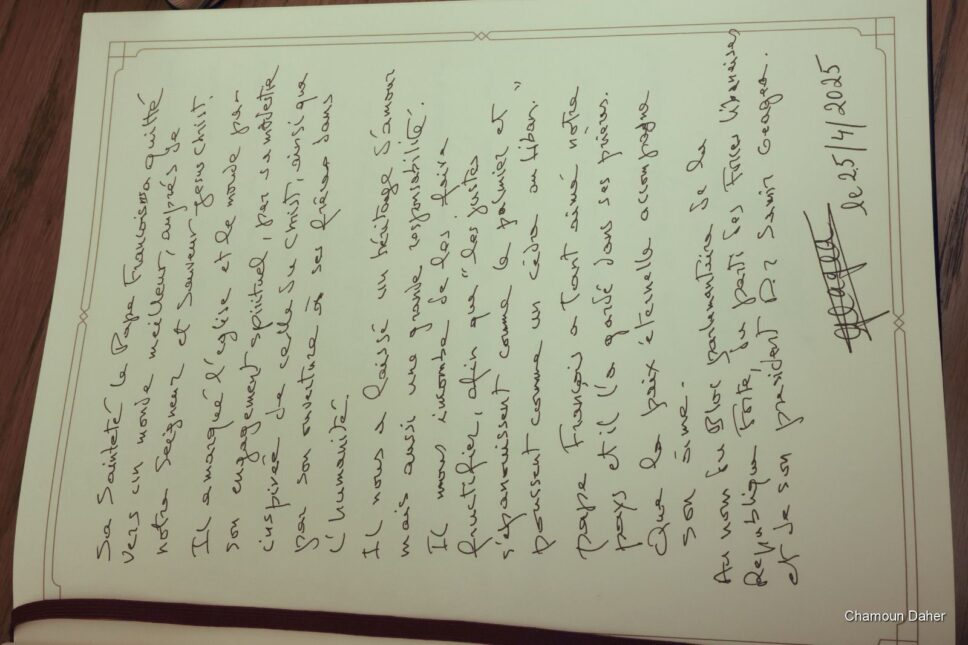 Sa Sainteté le Pape Francois a quitté
vers un monde meilleur, auprès de
notre Seigneur et Sauveur Jesus Christ.
Il a marqué l'église et le monde par
son engagement spirituel, par sa modestie
inspirée de celle du Christ, ainsi que
par son ouverture à ses frères dans
l'humanité.
Il nous a laissé un héritage d'amour
mais aussi une grande responsabilité.
Il nous incombe de les faire
fructifier, afin que "les justes
s'épanouissent comme le palmier et
poussent comme un cèdre au Liban."
Pape François a tant aimé nôtre
pays et il l'a gardé dans ses prières.
Que la paix éternelle accompagne
son âme.
Au nom du Bloc parlementaire de la
Republique Forte, du parti des Forces libanaises
et de son president Dr Samir Geagea.
le 25/4/2025
Chamoun Daher